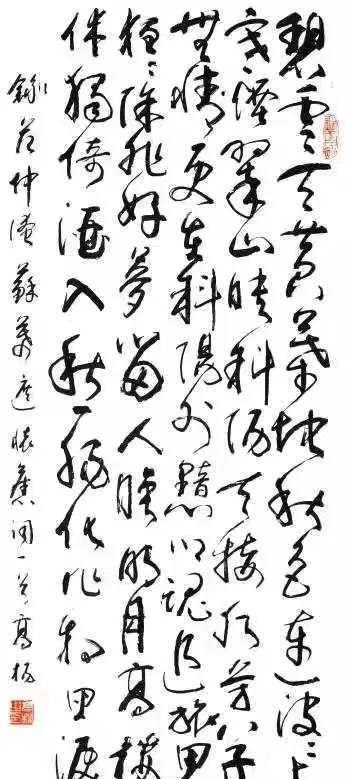 碧雲天黄葉地秋色連波波上
寒煙翠山映斜陽天接水芳草
無情更在斜陽外黯鄉魂追旅思
夜夜除非好夢留人睡明月高樓
休獨倚酒入愁腸化作相思淚
錄范仲淹蘇幕遮懷舊詞一首高